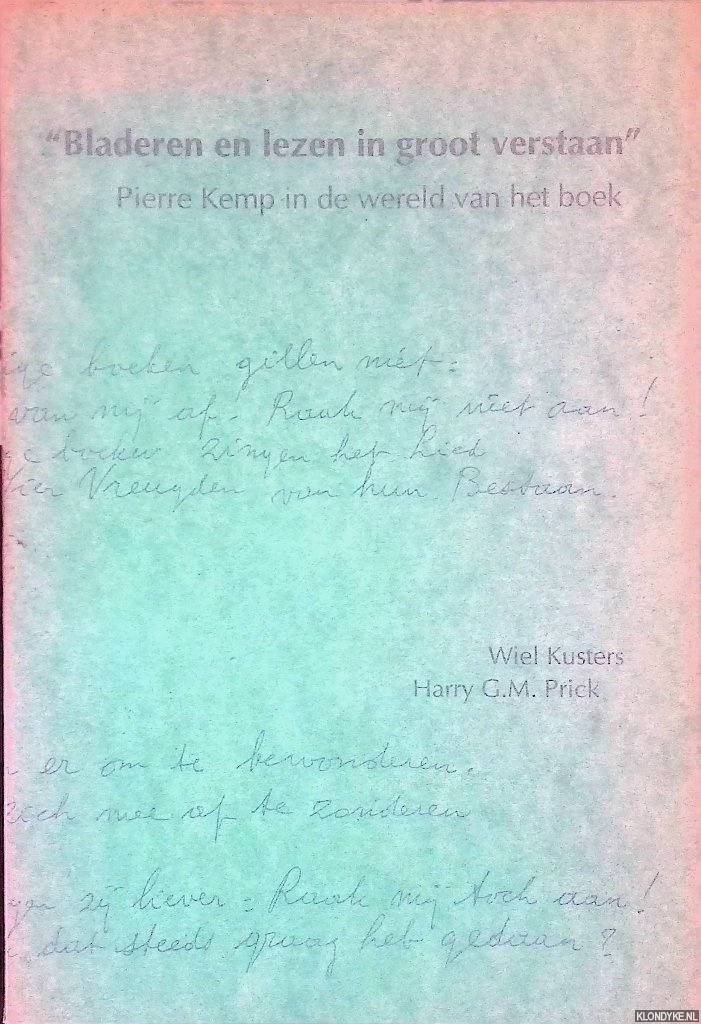 "Bladeren en lezen in groot verstaan"
Pierre Kemp in de wereld van het boek
boeken gillen niet:
van mij af! Raak mij niet aan!
boeken zingen het Lied
Vier Vreugden van hun Bestaan.
Wiel Kusters
Harry G.M. Prick
er om te bewonderen,
zich mee af te zonderen
zij liever: Raak mij toch aan!
dat steeds graag heb gedaan?
KLONDYKE.NL